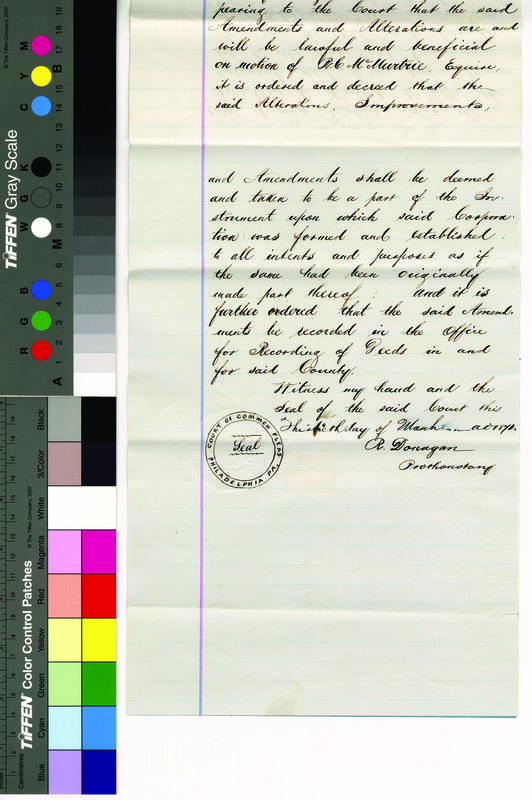 pearing to the Court that the said
Amendments and Alterations are and
will be lawful and beneficial
on motion of R.C McMurtrie, Equire,
it is ordered and decreed that the
said Alterations, Improvements,
and Amendments shall be deemed
and taken to be a part of the In-
strument upon which said Corpora-
tion was formed and established:
to all intents and purposes as if
the same had been originally
made part thereof; and it is
further ordered that the said Amend-
ments be recorded in the Office
for Recording of Deeds in and
for said County.
Witness my hand and the
Seal of the said Court this
day of March AD 187
R. Donagan
Prothonotary
COURT OF COMMON PLEAS
Seal
PHILADELPHIA PA.
TIFFEN Gray Scale
© The Tiffen Company, 2007
R G B W G K C Y M
A 1 2 3 4 5 6 M 8 9 10 11 12 13 14 15 B 17 18 19
TIFFEN Color Control Patches
© The Tiffen Company, 2007
Centimetres
Blue Cyan Green Yellow Red Magenta White 3/Color Black